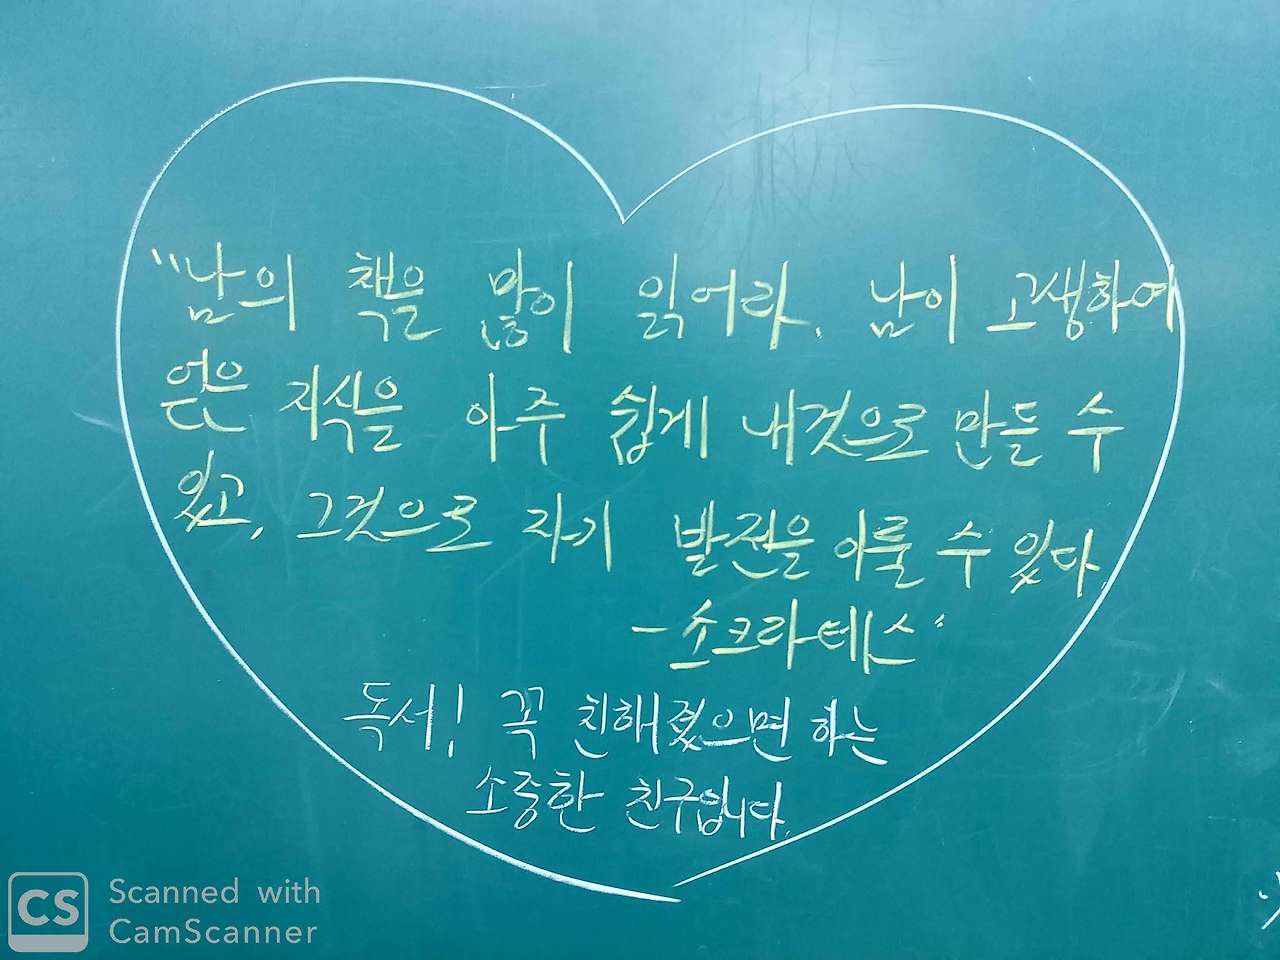 "남의 책을 많이 읽어라. 남이 고생하여
얻은 지식을 아주 쉽게 내것으로 만들 수
있고, 그것으로 자기 발전을 이룰 수 있다.
-소크라테스"
독서! 꼭 친해졌으면 하는
소중한 친구입니다.
CS Scanned with
CamScanner